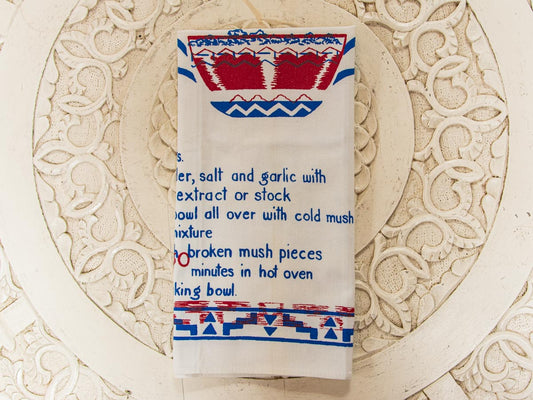 s.
er, salt and garlic with
extract or stock
bowl all over with cold mush
mixture
broken mush pieces
minutes in hot oven
king bowl.